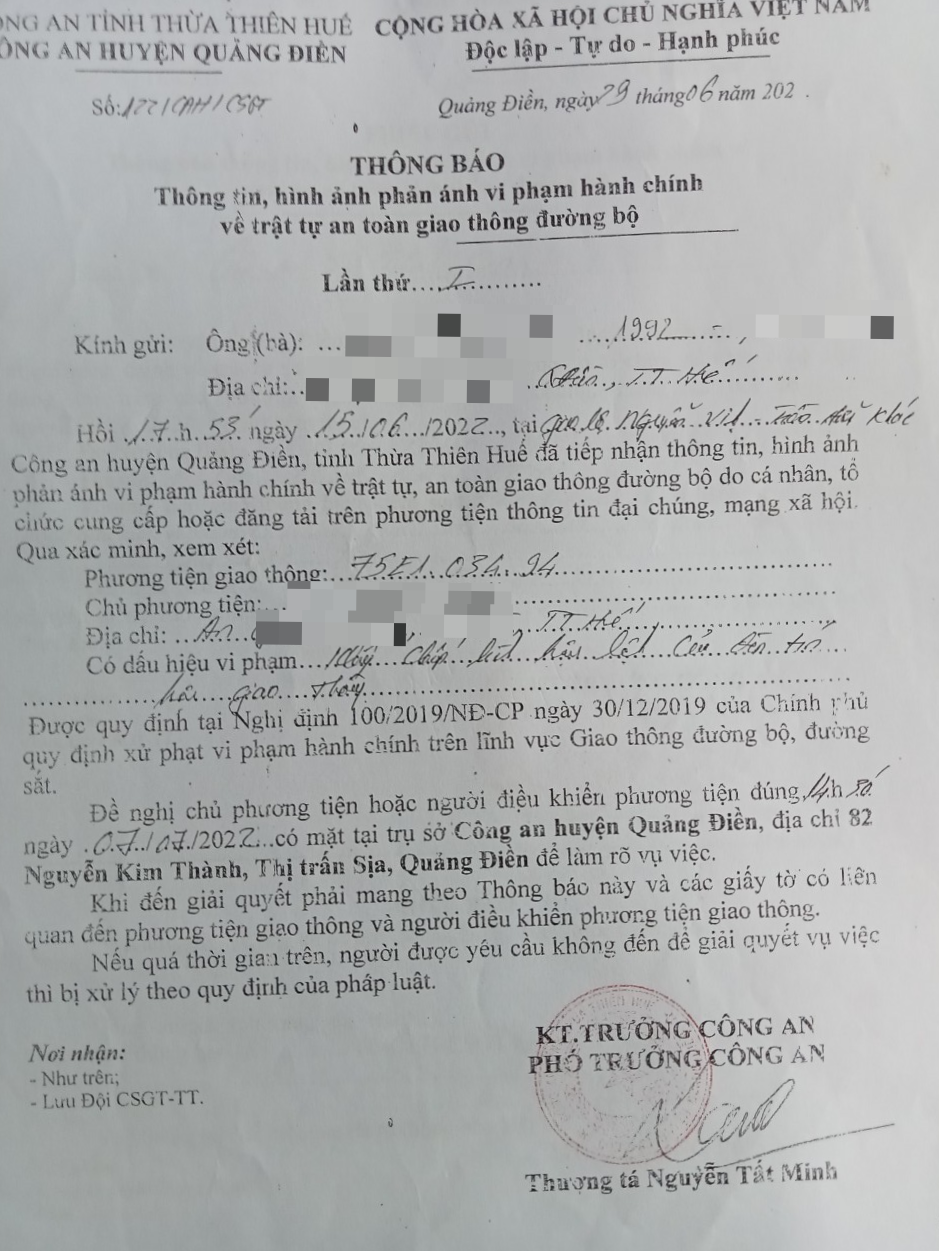 ÔNG AN TỈNH THỪA THIÊN HUẾ CỘNG HÒA XÃ HỘI CHỦ NGHĨA VIỆT NAM
ÔNG AN HUYỆN QUẢNG ĐIỀN Độc lập - Tự do - Hạnh phúc
Số:122/CAH/CSGT Quảng Điền, ngày 29 tháng 06 năm 202 .
THÔNG BÁO
Thông tin, hình ảnh phản ánh vi phạm hành chính
về trật tự an toàn giao thông đường bộ
Lần thứ....I...........
Kính gửi: Ông (bà): ... ....1992......,
Địa chỉ:.. TT Huế.........
Hồi .17.h. 53 ngày .15./06../2022.., tại
Công an huyện Quảng Điền, tỉnh Thừa Thiên Huế đã tiếp nhận thông tin, hình ảnh
phản ánh vi phạm hành chính về trật tự, an toàn giao thông đường bộ do cá nhân, tổ
chức cung cấp hoặc đăng tải trên phương tiện thông tin đại chúng, mạng xã hội.
Qua xác minh, xem xét:
Phương tiện giao thông:...75E1.034.94
Chủ phương tiện:...
Địa chỉ: ...An TT Huế
Có dấu hiệu vi phạm...Không chấp hành hiệu lệnh của đèn tín
hiệu giao thông
Được quy định tại Nghị định 100/2019/NĐ-CP ngày 30/12/2019 của Chính phủ
quy định xử phạt vi phạm hành chính trên lĩnh vực Giao thông đường bộ, đường
sắt.
Đề nghị chủ phương tiện hoặc người điều khiển phương tiện đúng 14h 30
ngày .07./07./2022...có mặt tại trụ sở Công an huyện Quảng Điền, địa chỉ 82
Nguyễn Kim Thành, Thị trấn Sịa, Quảng Điền để làm rõ vụ việc.
Khi đến giải quyết phải mang theo Thông báo này và các giấy tờ có liên
quan đến phương tiện giao thông và người điều khiển phương tiện giao thông.
Nếu quá thời gian trên, người được yêu cầu không đến để giải quyết vụ việc
thì bị xử lý theo quy định của pháp luật.
KT.TRƯỞNG CÔNG AN
PHÓ TRƯỞNG CÔNG AN
Nơi nhận:
- Như trên;
- Lưu Đội CSGT-TT.
Thượng tá Nguyễn Tất Minh